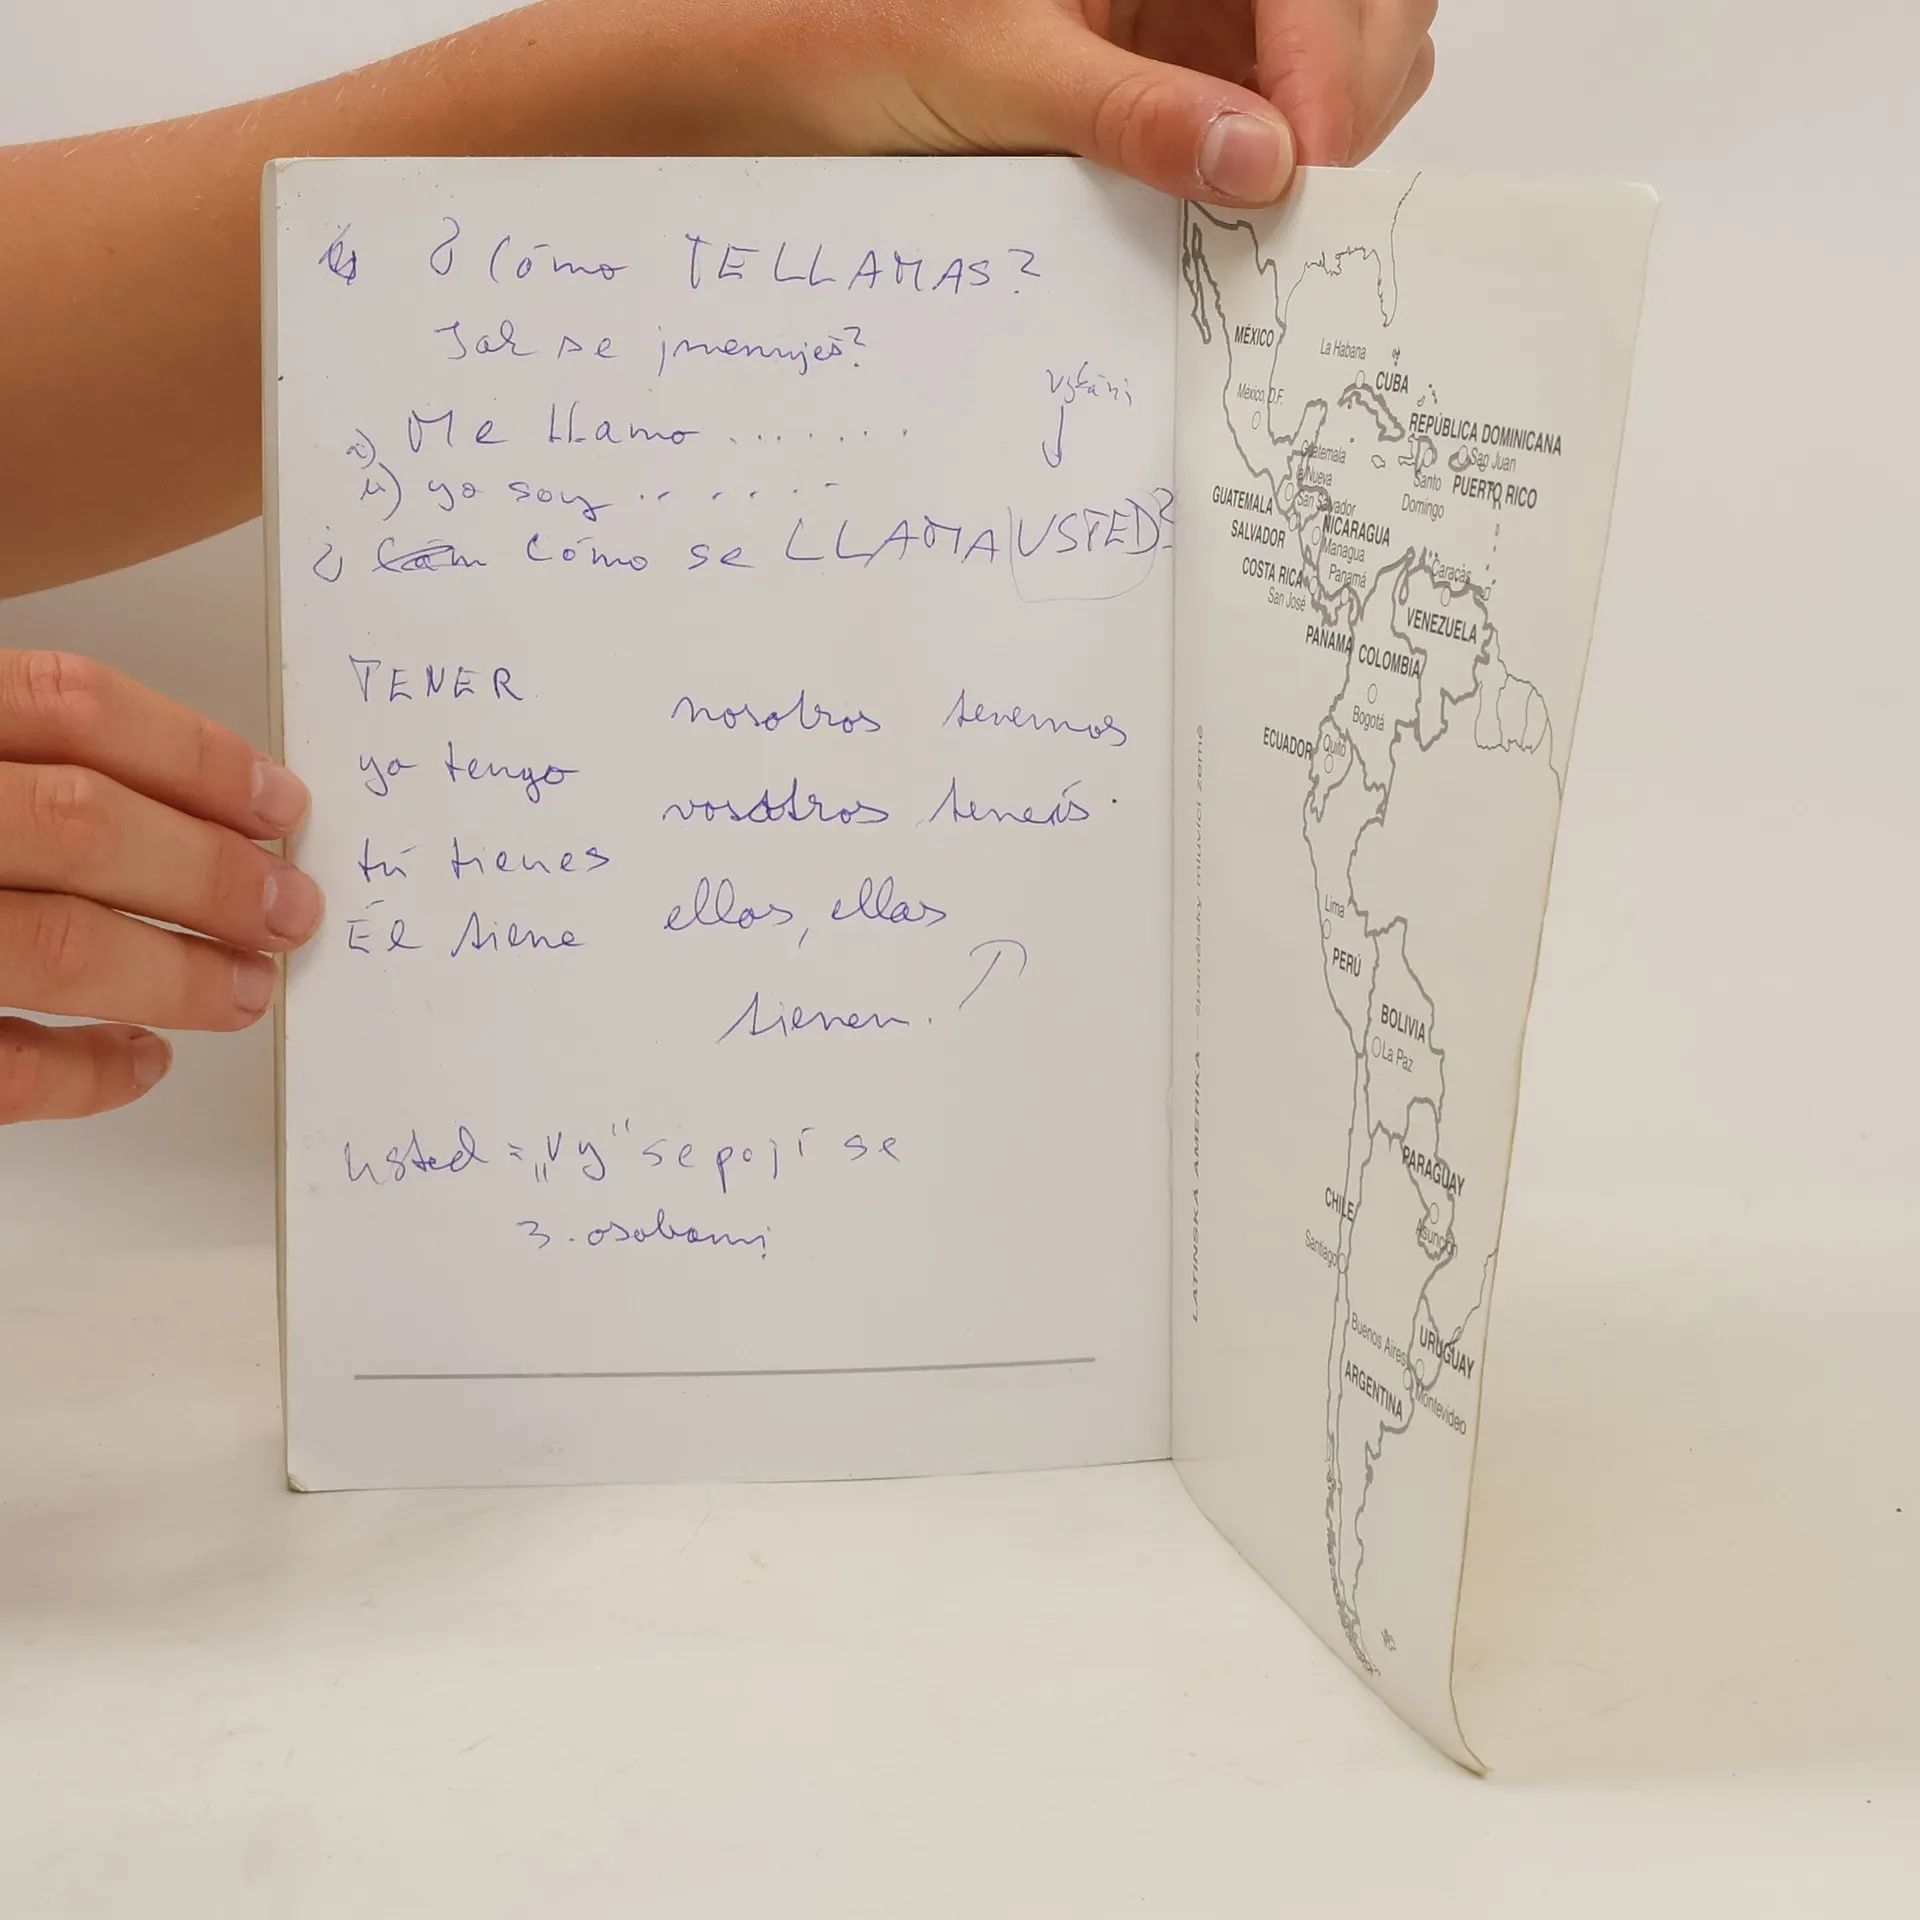 ¿ Cómo TE LLAMAS?
Jak se jmenuješ?
Me llamo .......
yo soy ......
vykání
¿ Cómo se LLAMA USTED?
TENER
yo tengo
tú tienes
Él tiene
nosotros tenemos
vosotros tenéis.
ellos, ellas
tienen.
usted = „Vy“ se pojí se
3. osobami
LATINSKÁ AMERIKA – španělsky mluvící země
MÉXICO
La Habana
CUBA
México, D.F.
REPÚBLICA DOMINICANA
San Juan
Santo
Domingo
PUERTO RICO
Guatemala
la Nueva
GUATEMALA
San Salvador
SALVADOR
NICARAGUA
Managua
COSTA RICA
San José
Panamá
Caracas
PANAMA
VENEZUELA
COLOMBIA
Bogotá
ECUADOR
Quito
Lima
PERÚ
BOLIVIA
La Paz
PARAGUAY
Asunción
CHILE
Santiago
Buenos Aires
URUGUAY
ARGENTINA
Montevideo